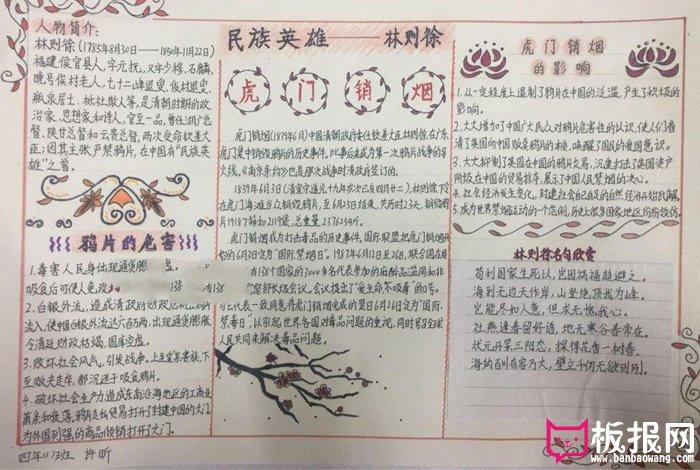 人物简介:
林则徐(1785年8月30日——1850年11月22日)
福建侯官县人,字元抚,又字少穆、石麟,
晚号俟村老人,七十二峰退叟,
瓶泉居士、栎社散人等,是清朝时期的政
治家、思想家和诗人,官至一品,曾任湖广总
督、陕甘总督和云贵总督,两次受命钦差大
臣;因其主张严禁鸦片,在中国有“民族英
雄”之誉。
鸦片的危害
1.毒害人民身体
吸食后可使人
2.白银外流,造成清政府财政
流入,使中国白银外流六百万两,出现通货膨胀
令清廷财政枯竭,国库空虚。
3.败坏社会风气,引失战争,上至皇亲贵族,下
至贩夫走卒,都沉迷于吸食鸦片。
4.破坏社会生产力造成东南沿海地区的工商业
萧条和衰落,鸦片走私贸易打开了封建中国的大门,
为外国列强的商品倾销打开了大门。
四年 班 许昕
民族英雄——林则徐
虎门销烟
虎门销烟(1839年6月)中国清朝政府委任钦差大臣林则徐在广东
虎门集中销毁鸦片的历史事件,此事后来成为第一次鸦片战争的导
火线。《南京条约》也是那次战争时清政府签订的。
1839年6月3日(清宣宗道光十九年岁次己亥四月廿二)林则徐下令
在虎门海滩当众销毁鸦片,至6月25日结束,共历时23天,销毁鸦
片19187箱和2119袋,总重量2376254斤。
虎门销烟成为打击毒品的历史事件,国际联盟把虎门销烟开
始的6月3日定为“国际禁烟日”。1987年6月12日至26日,联合国在
有138个国家的3000多名代表参加的麻醉品滥用和非
部长级会议,会议提出了“爱生命不吸毒”的口号。
代表一致同意将虎门销烟完成的翌日6月26日定为“国际
禁毒日”,以引起世界各国对毒品问题的重视,同时号召全球
人民共同来解决毒品问题。
虎门销烟
的影响
1.从一定程度上遏制了鸦片在中国的泛滥,产生了积极的
影响。
2.大大增加了中国广大民众对鸦片危害性的认识,使人们看
清了英国向中国贩卖鸦片的本质,唤醒了国民的爱国意识。
3.大大抑制了英国在中国的鸦片交易,沉重打击了英国资产
阶级在中国的贸易掠夺,展示了中国人民禁烟的决心。
4.社会经济发生变化,封建社会自己自足的自然经济开始瓦解。
5.成为世界禁烟运动中的一个范例,历史上很多国家地区纷纷效仿。
林则徐名句欣赏
苟利国家生死以,岂因祸福趋避之。
海到无边天作岸,山登绝顶我为峰。
岂能尽如人意,但求无愧我心。
社燕逢春留好语,地无寒谷春常在。
状元开第三阳态,探得花香一树春。
海纳百川有容乃大,壁立千仞无欲则刚。
板报网
www.banbaowang.com